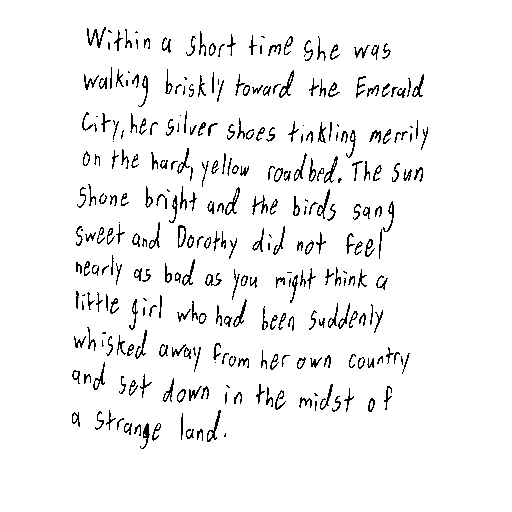 Within a short time she was
walking briskly toward the Emerald
City, her silver shoes tinkling merrily
on the hard, yellow roadbed. The sun
shone bright and the birds sang
sweet and Dorothy did not feel
nearly as bad as you might think a
little girl who had been suddenly
whisked away from her own country
and set down in the midst of
a strange land.